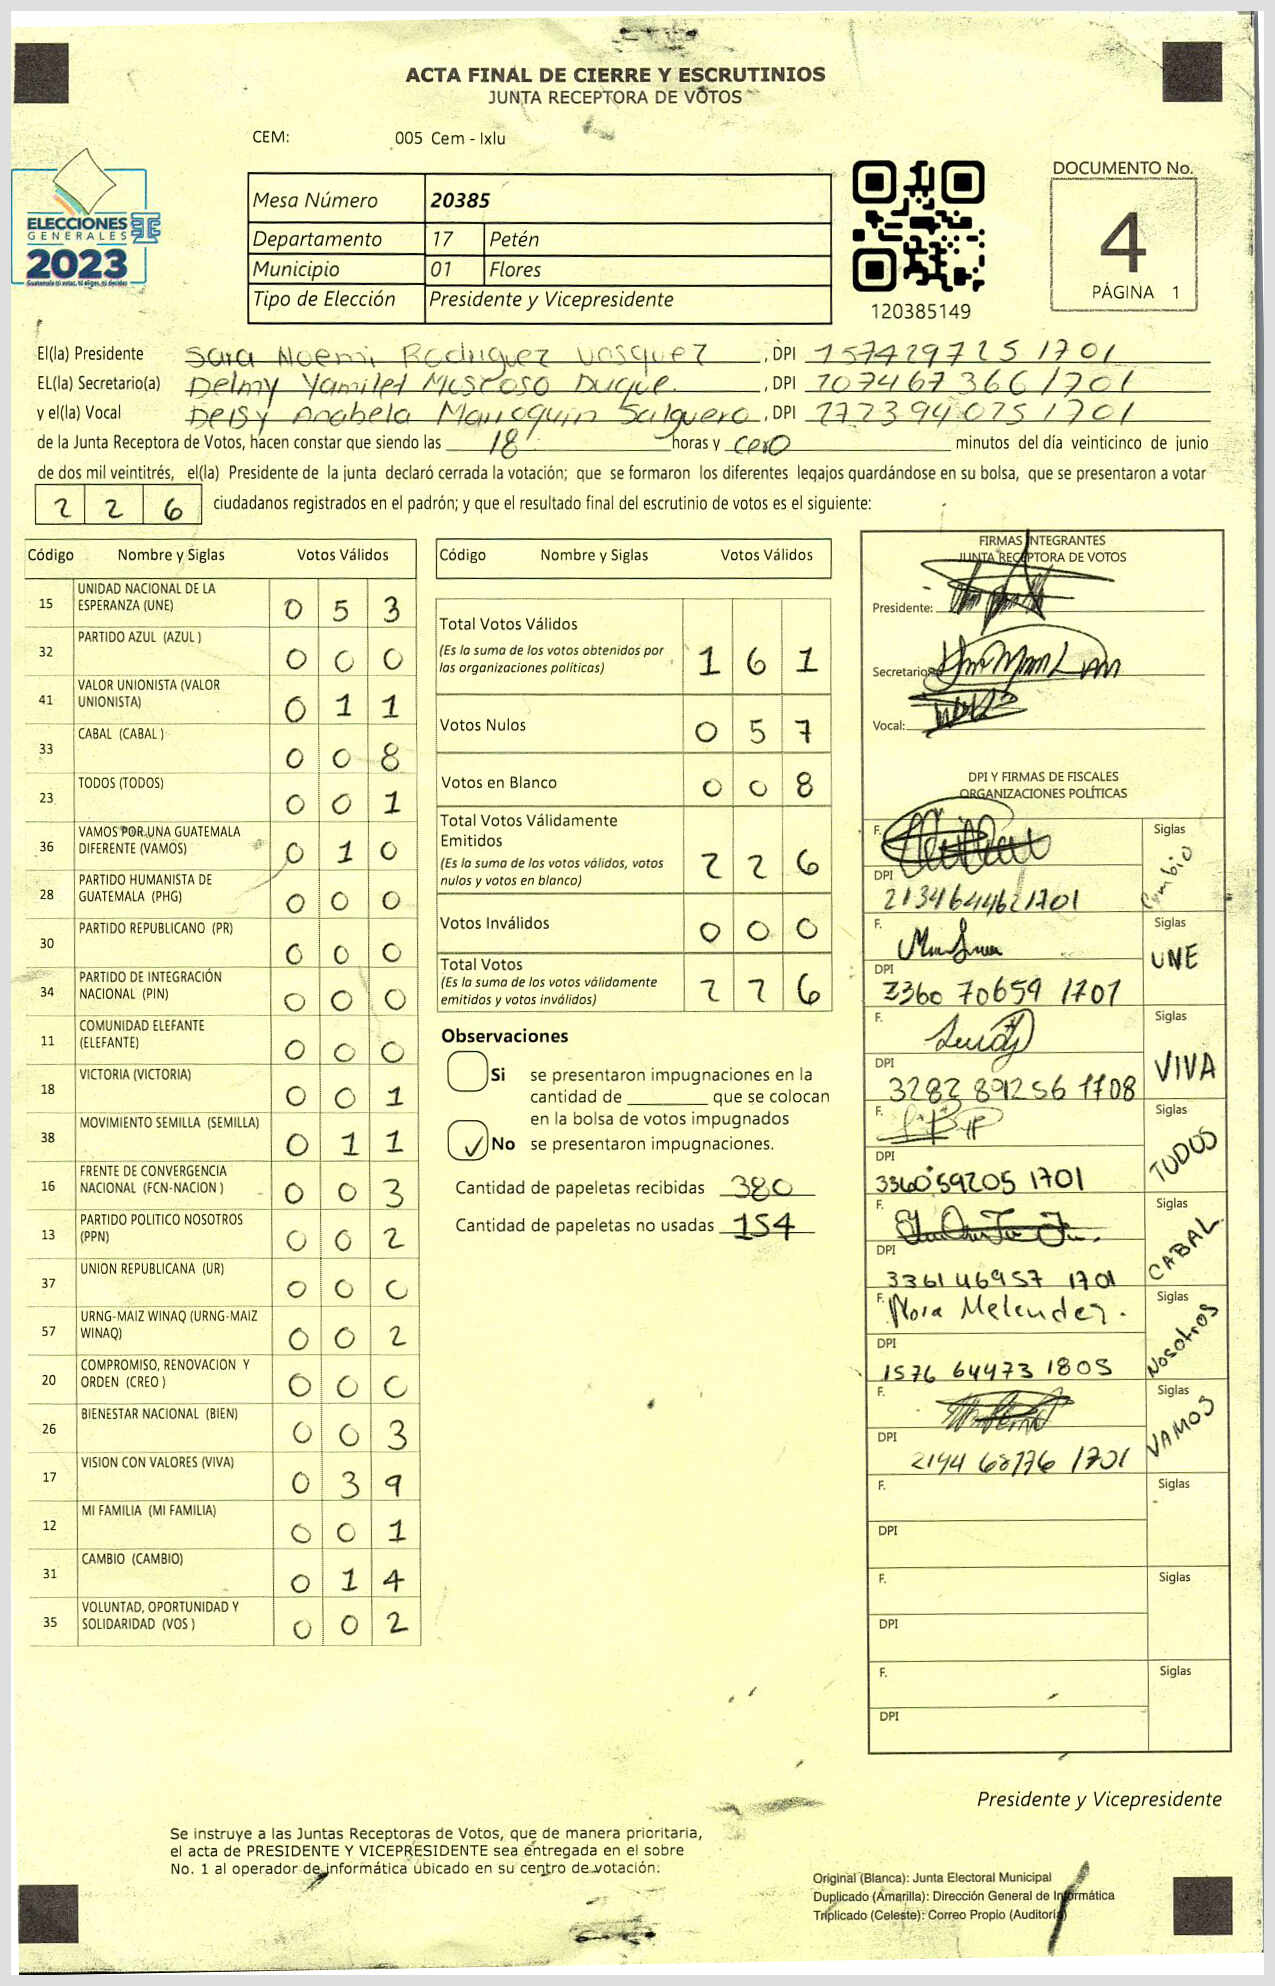 ACTA FINAL DE CIERRE Y ESCRUTINIOS
JUNTA RECEPTORA DE VOTOS
CEM: 005 Cem - Ixlu
ELECCIONES
GENERALES
2023
Guatemala tú votas, tú eliges, tú decides
Mesa Número 20385
Departamento 17 Petén
Municipio 01 Flores
Tipo de Elección Presidente y Vicepresidente
120385149
DOCUMENTO No.
4
PÁGINA 1
El(la) Presidente Sara Noemi Rodriguez Vasquez, DPI 157429725 1701
EL(la) Secretario(a) Delmy Yamilet Moscoso Duque, DPI 207467366 1701
y el(la) Vocal Deisy Anabela Marroquin Salguero, DPI 277394025 1701
de la Junta Receptora de Votos, hacen constar que siendo las 18 horas y cero minutos del día veinticinco de junio
de dos mil veintitrés, el(la) Presidente de la junta declaró cerrada la votación; que se formaron los diferentes legajos quardándose en su bolsa, que se presentaron a votar
2 2 6 ciudadanos registrados en el padrón; y que el resultado final del escrutinio de votos es el siguiente:
Código Nombre y Siglas Votos Válidos
15 UNIDAD NACIONAL DE LA ESPERANZA (UNE) 0 5 3
32 PARTIDO AZUL (AZUL ) 0 0 0
41 VALOR UNIONISTA (VALOR UNIONISTA) 0 1 1
33 CABAL (CABAL ) 0 0 8
23 TODOS (TODOS) 0 0 1
36 VAMOS POR UNA GUATEMALA DIFERENTE (VAMOS) 0 1 0
28 PARTIDO HUMANISTA DE GUATEMALA (PHG) 0 0 0
30 PARTIDO REPUBLICANO (PR) 0 0 0
34 PARTIDO DE INTEGRACIÓN NACIONAL (PIN) 0 0 0
11 COMUNIDAD ELEFANTE (ELEFANTE) 0 0 0
18 VICTORIA (VICTORIA) 0 0 1
38 MOVIMIENTO SEMILLA (SEMILLA) 0 1 1
16 FRENTE DE CONVERGENCIA NACIONAL (FCN-NACION ) 0 0 3
13 PARTIDO POLITICO NOSOTROS (PPN) 0 0 2
37 UNION REPUBLICANA (UR) 0 0 0
57 URNG-MAIZ WINAQ (URNG-MAIZ WINAQ) 0 0 2
20 COMPROMISO, RENOVACION Y ORDEN (CREO ) 0 0 0
26 BIENESTAR NACIONAL (BIEN) 0 0 3
17 VISION CON VALORES (VIVA) 0 3 9
12 MI FAMILIA (MI FAMILIA) 0 0 1
31 CAMBIO (CAMBIO) 0 1 4
35 VOLUNTAD, OPORTUNIDAD Y SOLIDARIDAD (VOS ) 0 0 2
Código Nombre y Siglas Votos Válidos
Total Votos Válidos
(Es la suma de los votos obtenidos por
las organizaciones políticas) 1 6 1
Votos Nulos 0 5 7
Votos en Blanco 0 0 8
Total Votos Válidamente
Emitidos
(Es la suma de los votos válidos, votos
nulos y votos en blanco) 2 2 6
Votos Inválidos 0 0 0
Total Votos
(Es la suma de los votos válidamente
emitidos y votos inválidos) 2 2 6
Observaciones
Si se presentaron impugnaciones en la
cantidad de ________ que se colocan
en la bolsa de votos impugnados
No se presentaron impugnaciones.
Cantidad de papeletas recibidas 380
Cantidad de papeletas no usadas 154
FIRMAS INTEGRANTES
JUNTA RECEPTORA DE VOTOS
Presidente:
Secretario:
Vocal:
DPI Y FIRMAS DE FISCALES
ORGANIZACIONES POLÍTICAS
F. Siglas Cambio
DPI 2134644621701
F. Siglas UNE
DPI 2360 70659 1701
F. Siglas VIVA
DPI 3282 89256 1708
F. Siglas TODOS
DPI 3360 59205 1701
F. Siglas CABAL
DPI 3361 46957 1701
F. Nora Melendez. Siglas Nosotros
DPI 1576 64473 1805
F. Siglas VAMOS
DPI 2194 68776 1701
F. Siglas
DPI
F. Siglas
DPI
F. Siglas
DPI
Presidente y Vicepresidente
Se instruye a las Juntas Receptoras de Votos, que de manera prioritaria,
el acta de PRESIDENTE Y VICEPRESIDENTE sea entregada en el sobre
No. 1 al operador de informática ubicado en su centro de votación.
Original (Blanca): Junta Electoral Municipal
Duplicado (Amarilla): Dirección General de Informática
Triplicado (Celeste): Correo Propio (Auditoría)